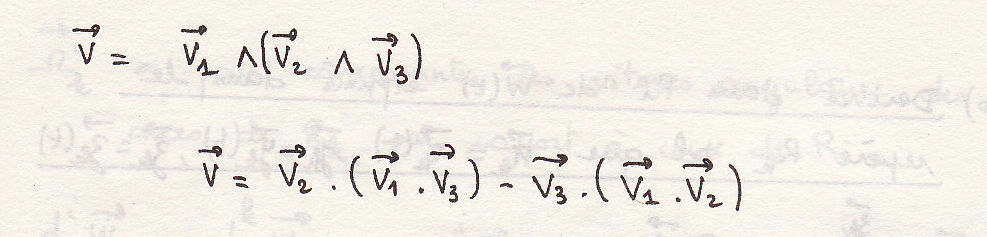 V⃗ = V⃗₁ ∧ (V⃗₂ ∧ V⃗₃)
V⃗ = V⃗₂ . (V⃗₁ . V⃗₃) - V⃗₃ . (V⃗₁ . V⃗₂)